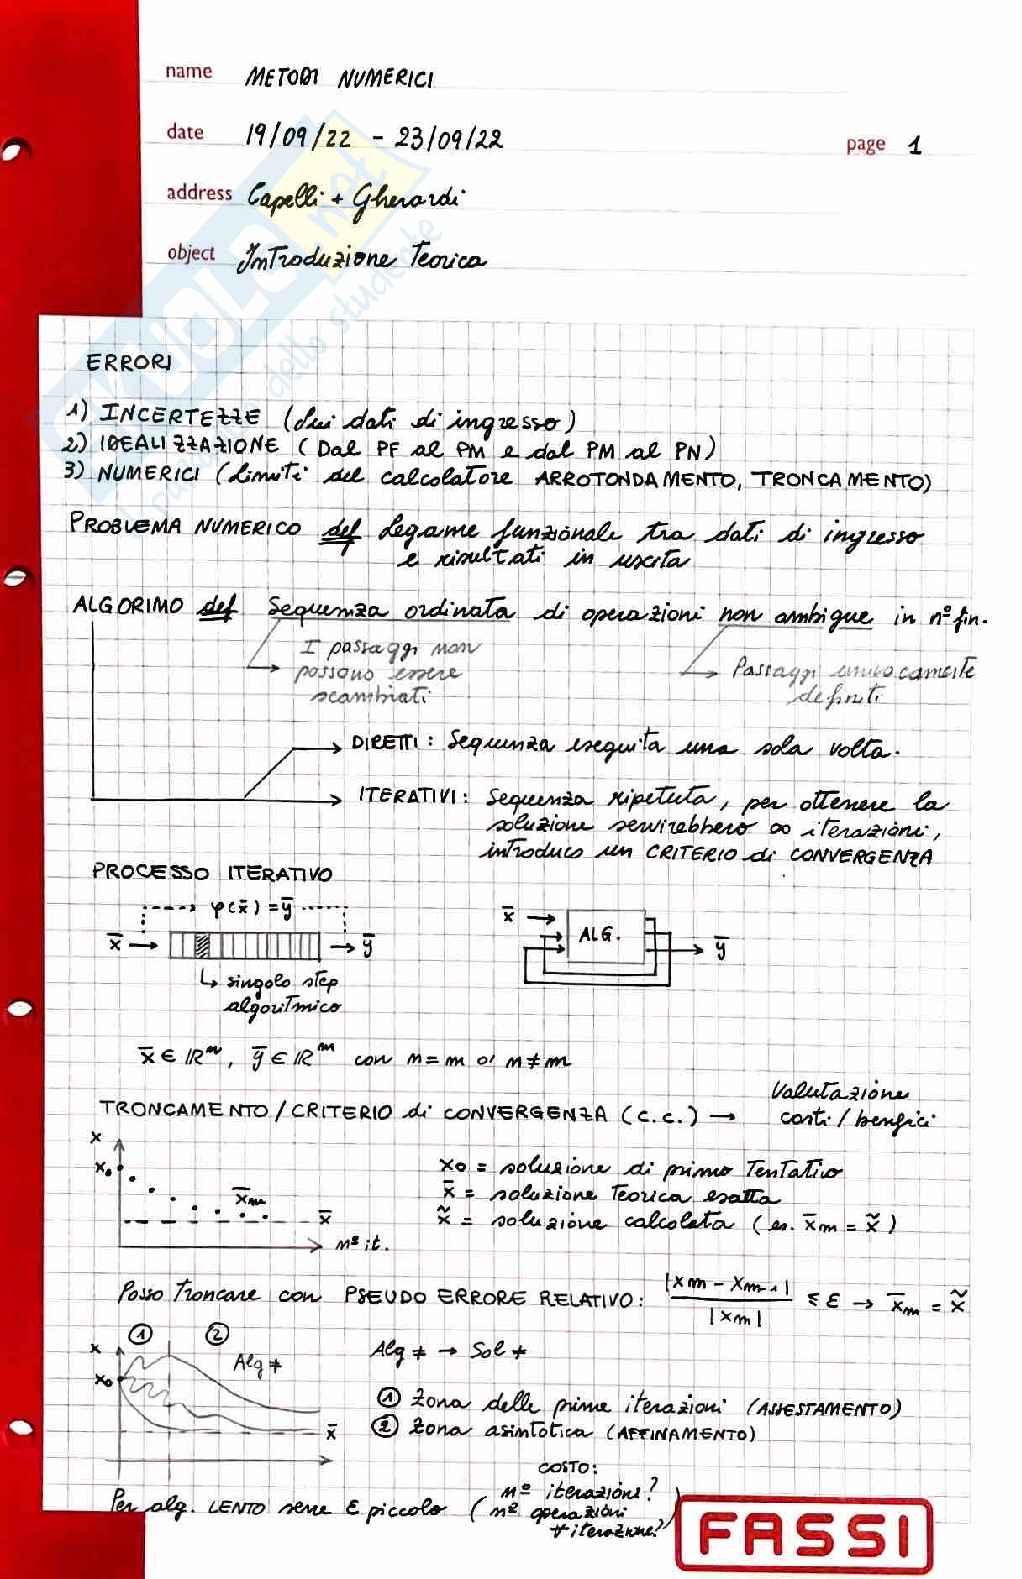 name METODI NUMERICI
date 19/09/22 - 23/09/22
page 1
address Capelli + Gherardi
object Introduzione Teorica
ERRORI
1) INCERTEZZE (dei dati di ingresso)
2) IDEALIZZAZIONE (Dal PF al PM e dal PM al PN)
3) NUMERICI (limiti del calcolatore ARROTONDAMENTO, TRONCAMENTO)
PROBLEMA NUMERICO def Legame funzionale tra dati di ingresso
e risultati in uscita
ALGORIMO def Sequenza ordinata di operazioni non ambigue in nº fin.
I passaggi non
possono essere
scambiati
Passaggi univocamente
definiti
DIRETTI: Sequenza eseguita una sola volta.
ITERATIVI: Sequenza ripetuta, per ottenere la
soluzione servirebbero ∞ iterazioni,
introduco un CRITERIO di CONVERGENZA
PROCESSO ITERATIVO
φ(x̄) = ȳ
x̄ → → ȳ
↳ singolo step
algoritmico
x̄ → ALG. → ȳ
x̄ ∈ ℝⁿ, ȳ ∈ ℝᵐ con n = m o n ≠ m
TRONCAMENTO/CRITERIO di CONVERGENZA (C.C.) → Valutazione
costi / benefici
x
x₀
x̄ₘ
x̄
nº it.
x₀ = soluzione di primo Tentativo
x̄ = soluzione Teorica esatta
x̃ = soluzione calcolata (es. x̄ₘ = x̃)
Posso Troncare con PSEUDO ERRORE RELATIVO: |xₘ - xₘ₋₁| / |xₘ| ≤ ε → x̄ₘ = x̃
① ②
x
x₀
Alg ≠
x̄
Alg ≠ → Sol ≠
① Zona delle prime iterazioni (ASSESTAMENTO)
② Zona asintotica (AFFINAMENTO)
Per alg. LENTO serve ε piccolo
COSTO:
(nº iterazioni?
nº operazioni
∀ iterazione?)
FASSI